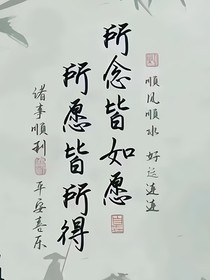 順风順水 好运連連
所念皆如愿
所愿皆所得
诸事順利 平安喜乐